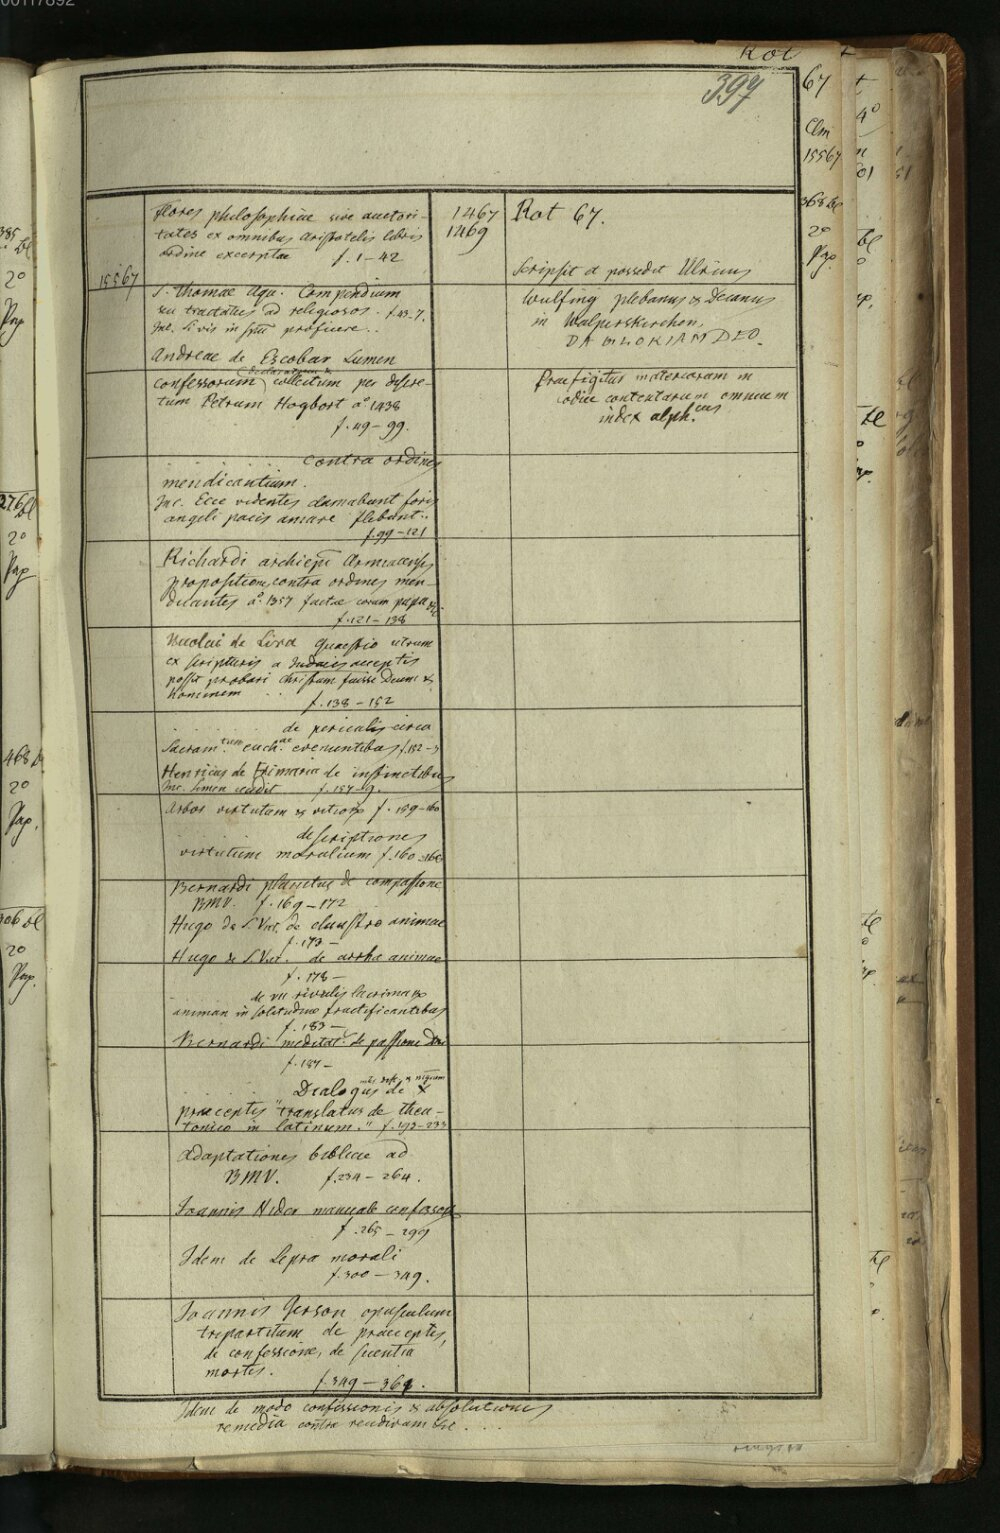 00117892
Rot
397
67
Clm
15567
368 Bl
2°
Pap.
15567
Flores philosophiae sive auctori-
tates ex omnibus Aristotelis libris
ordine excerptae f. 1-42
S. Thomae Aqu. Compendium
seu tractatus ad religiosos. f. 43-7.
Inc. Si vis in spū proficere..
Andreae de Escobar Lumen
confessorum (declaratum & collectum per discre-
tum Petrum Hogbort a° 1438
f. 49-99.
. . . . . contra ordines
mendicantium.
Inc. Ecce videntes clamabunt foris
angeli pacis amare flebunt..
f. 99-121
Richardi archiepi Armacensis
propositiones contra ordines men-
dicantes a° 1357 factae coram papa
f. 121-138
Nicolai de Lira Quaestio utrum
ex scripturis a Judaeis acceptis
possit probari Christum fuisse Deum &
hominem f. 138-152
. . . . de periculis circa
Sacram.tum euch. evenientibus f. 152-
Henricus de Frimaria de instinctibus
Inc. Semen cecidit f. 157-9.
Arbor virtutum & vitiorum f. 159-160
. . . . descriptiones
virtutum moralium f. 160-
Bernardi planctus de compassione
BMV. f. 169-172
Hugo de S. Vict. de claustro animae
f. 173-
Hugo de S. Vict. de arrha animae
f. 178-
de VII rivulis lacrimarum
animam in solitudine fructificantibus
f. 183-
Bernardi meditat. de passione Dni
f. 187-
. . . . Dialogus de X
praeceptis "translatus de theu-
tonico in latinum." f. 193-233
Adaptationes bibliae ad
BMV. f. 234-264.
Joannis Nider manuale confessorum
f. 265-299
Idem de Lepra morali
f. 300-349.
Joannis Gerson opusculum
tripartitum de praeceptis,
de confessione, de scientia
mortis.
f. 349-361.
Idem de modo confessionis & absolutionis
remedia contra recidivam etc. . . .
1467
1469
Rot 67.
Scripsit et possedit Ulricus
Wulfing plebanus & Decanus
in Walperskirchen.
DA GLORIAM DEO.
Praefigitur materiarum in
codice contentarum omnium
index alph.cus
385
Bl
2°
Pap
276 Bl
2°
Pap
468 Bl
2°
Pap.
306 Bl
2°
Pap.